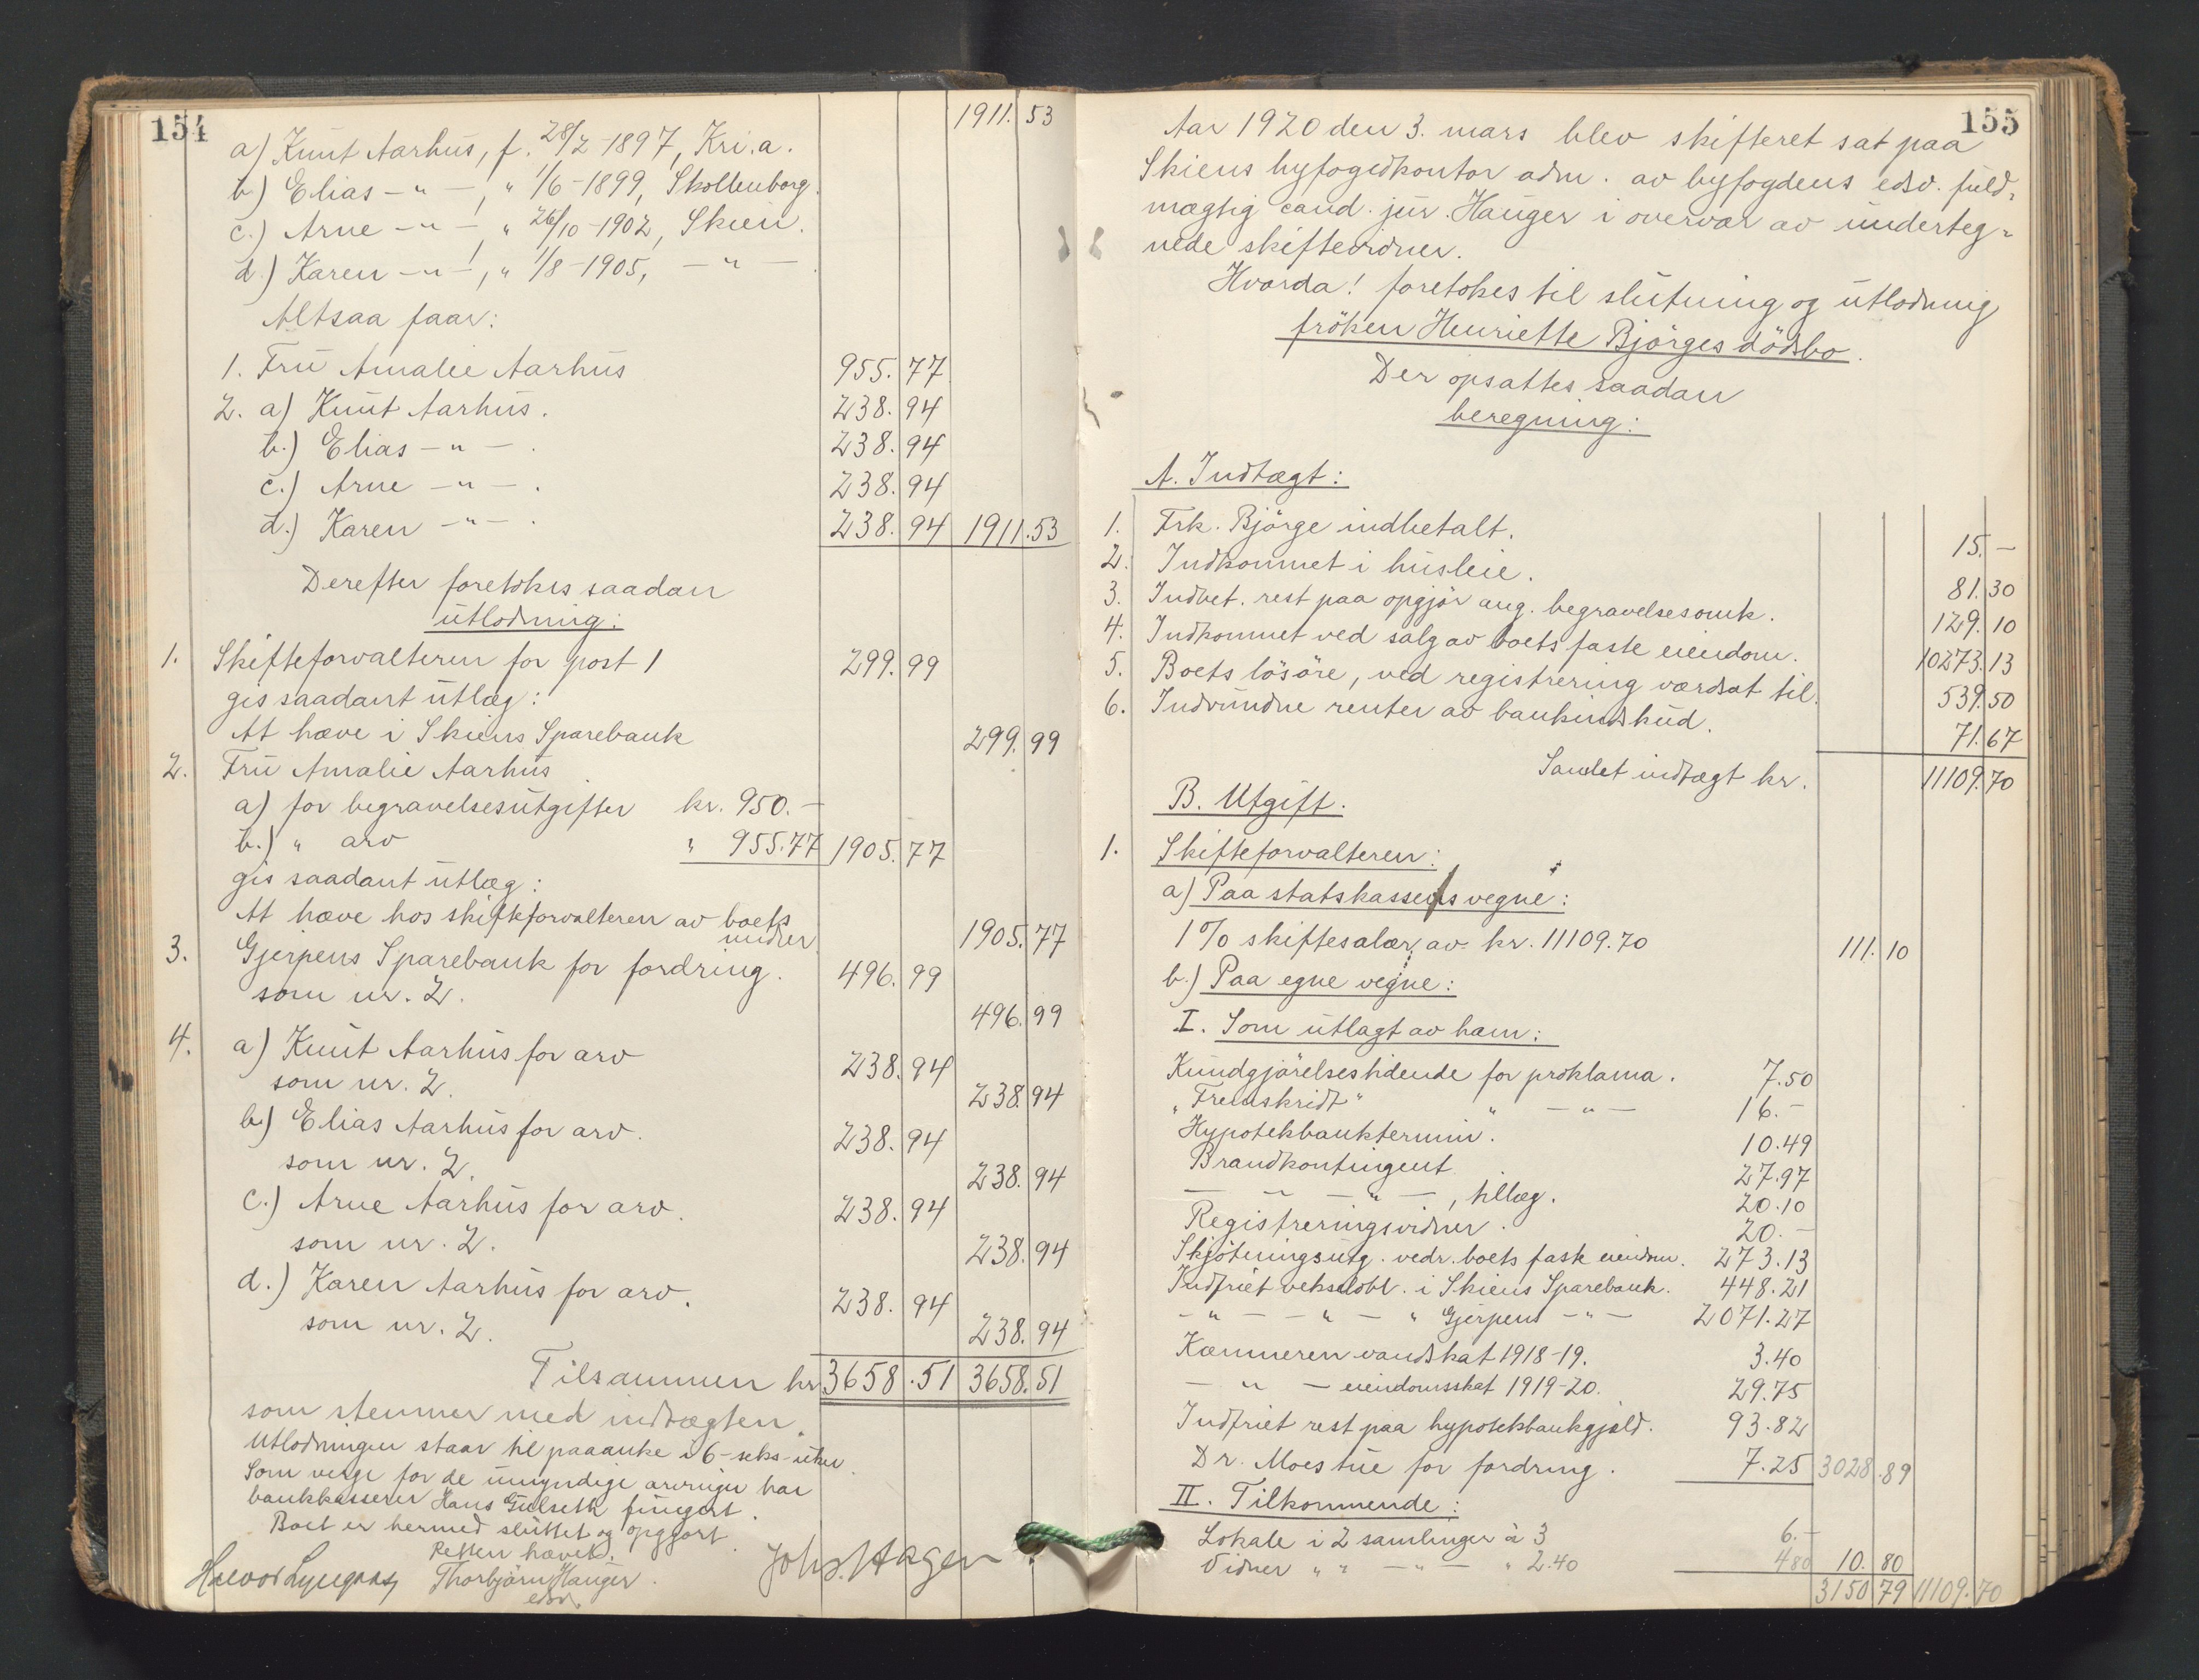 154
1911. 53
a) Knut Aarhus, f. 28/2-1897, Kri.a.
b) Elias -"-, " 1/6-1899, Skollenborg.
c.) Arne -"-, " 26/10-1902, Skien.
d.) Karen -"-, " 1/8-1905, -"-
Altsaa faar:
1. Fru Amalie Aarhus 955. 77
2. a) Knut Aarhus. 238. 94
b.) Elias -"-. 238. 94
c.) Arne -"-. 238. 94
d.) Karen -"-. 238. 94 1911. 53
Derefter foretokes saadan
utlodning:
1. Skifteforvalteren for post 1 299. 99
gis saadant utlæg:
At hæve i Skiens Sparebank 299. 99
2. Fru Amalie Aarhus
a) for begravelsesutgifter kr. 950.-
b.) " arv " 955.77 1905. 77
gis saadant utlæg:
At hæve hos skifteforvalteren av boets
midler 1905. 77
3. Gjerpens Sparebank for fordring. 496. 99
som nr. 2. 496. 99
4. a) Knut Aarhus for arv 238. 94
som nr. 2. 238. 94
b.) Elias Aarhus for arv. 238. 94
som nr. 2. 238. 94
c.) Arne Aarhus for arv. 238. 94
som nr. 2. 238. 94
d.) Karen Aarhus for arv. 238. 94
som nr. 2. 238. 94
Tilsammen kr 3658. 51 3658. 51
som stemmer med indtægten.
Utlodningen staar til paaanke i 6-seks-uker.
Som verge for de umyndige arvinger har
bankkasserer Hans Gulseth fungert.
Boet er hermed sluttet og opgjort.
Retten hævet.
Halvor Lyngaas Thorbjørn Hauger. Johs. Hagen
edsv.
155
Aar 1920 den 3. mars blev skifteret sat paa
Skiens byfogedkontor adm. av byfogdens edsv. fuld-
mægtig cand. jur. Hauger i overvær av underteg-
nede skiftevidner.
Hvorda! foretokes til slutning og utlodning
frøken Henriette Bjørges dødsbo.
Der opsattes saadan
beregning:
A. Indtægt:
1. Frk. Bjørge indbetalt. 15. -
2. Indkommet i husleie. 81. 30
3. Indbet. rest paa opgjør ang. begravelsesomk. 129. 10
4. Indkommet ved salg av boets faste eiendom. 10273. 13
5. Boets løsøre, ved registrering værdsat til. 539. 50
6. Indvundne renter av bankindskud. 71. 67
Samlet indtægt kr. 11109. 70
B. Utgift.
1. Skifteforvalteren:
a) Paa statskassens vegne:
1% skiftesalær av kr. 11109.70 111. 10
b.) Paa egne vegne:
I. Som utlagt av ham:
Kundgjørelsestidende for proklama. 7.50
"Fremskridt" " -"- 16.-
Hypotekbanktermin. 10.49
Brandkontingent 27.97
-"-, tillæg. 20.10
Registreringsvidner. 20.-
Skjøtningsutg. vedr. boets faste eiendom. 273.13
Indfriet vekselobl. i Skiens Sparebank. 448.21
-"- -"- " Gjerpens -"- 2071.27
Kæmneren vandskat 1918-19. 3.40
-"- eiendomsskat 1919-20. 29.75
Indfriet rest paa hypotekbankgjæld. 93.82
Dr. Moestue for fordring. 7.25 3028. 89
II. Tilkommende:
Lokale i 2 samlinger à 3 6.-
Vidner " " -"- " 2.40 4 80 10. 80
3150 79 11109. 70